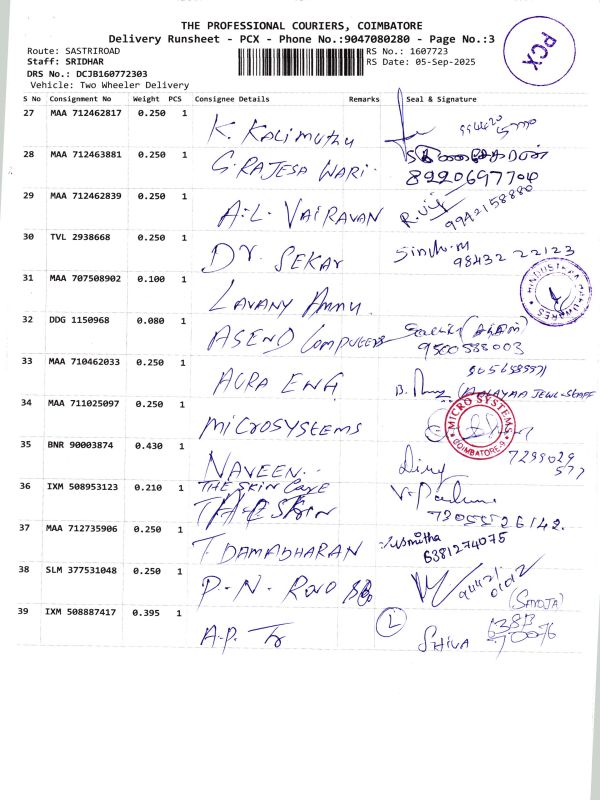 THE PROFESSIONAL COURIERS, COIMBATORE
Delivery Runsheet - PCX - Phone No.:9047080280 - Page No.:3
PCX
Route: SASTRIROAD
RS No.: 1607723
Staff: SRIDHAR
RS Date: 05-Sep-2025
DRS No.: DCJB160772303
Vehicle: Two Wheeler Delivery
S No Consignment No Weight PCS Consignee Details Remarks Seal & Signature
27 MAA 712462817 0.250 1
K. KALIMUTHU
28 MAA 712463881 0.250 1
G. RAJESA WARI.
8220697704
29 MAA 712462839 0.250 1
A.L. VAIRAVAN
9942158880
30 TVL 2938668 0.250 1
DR. SEKAR
98432 22123
31 MAA 707508902 0.100 1
LAVANY AMMU.
HINDUSTAN
32 DDG 1150968 0.080 1
ASEND COMPUTERS
9500555003
33 MAA 710462033 0.250 1
AURA ENG
34 MAA 711025097 0.250 1
MICROSYSTEMS
MICRO SYSTEMS
COIMBATORE-9
35 BNR 90003874 0.430 1
NAVEEN..
36 IXM 508953123 0.210 1
THE SKIN CAVE
37 MAA 712735906 0.250 1
T. DAMADHARAN
Susmitha
6381274075
38 SLM 377531048 0.250 1
P.N. ROAD
(SAROJA)
39 IXM 508887417 0.395 1
A.P. Tr
L
SHIVA